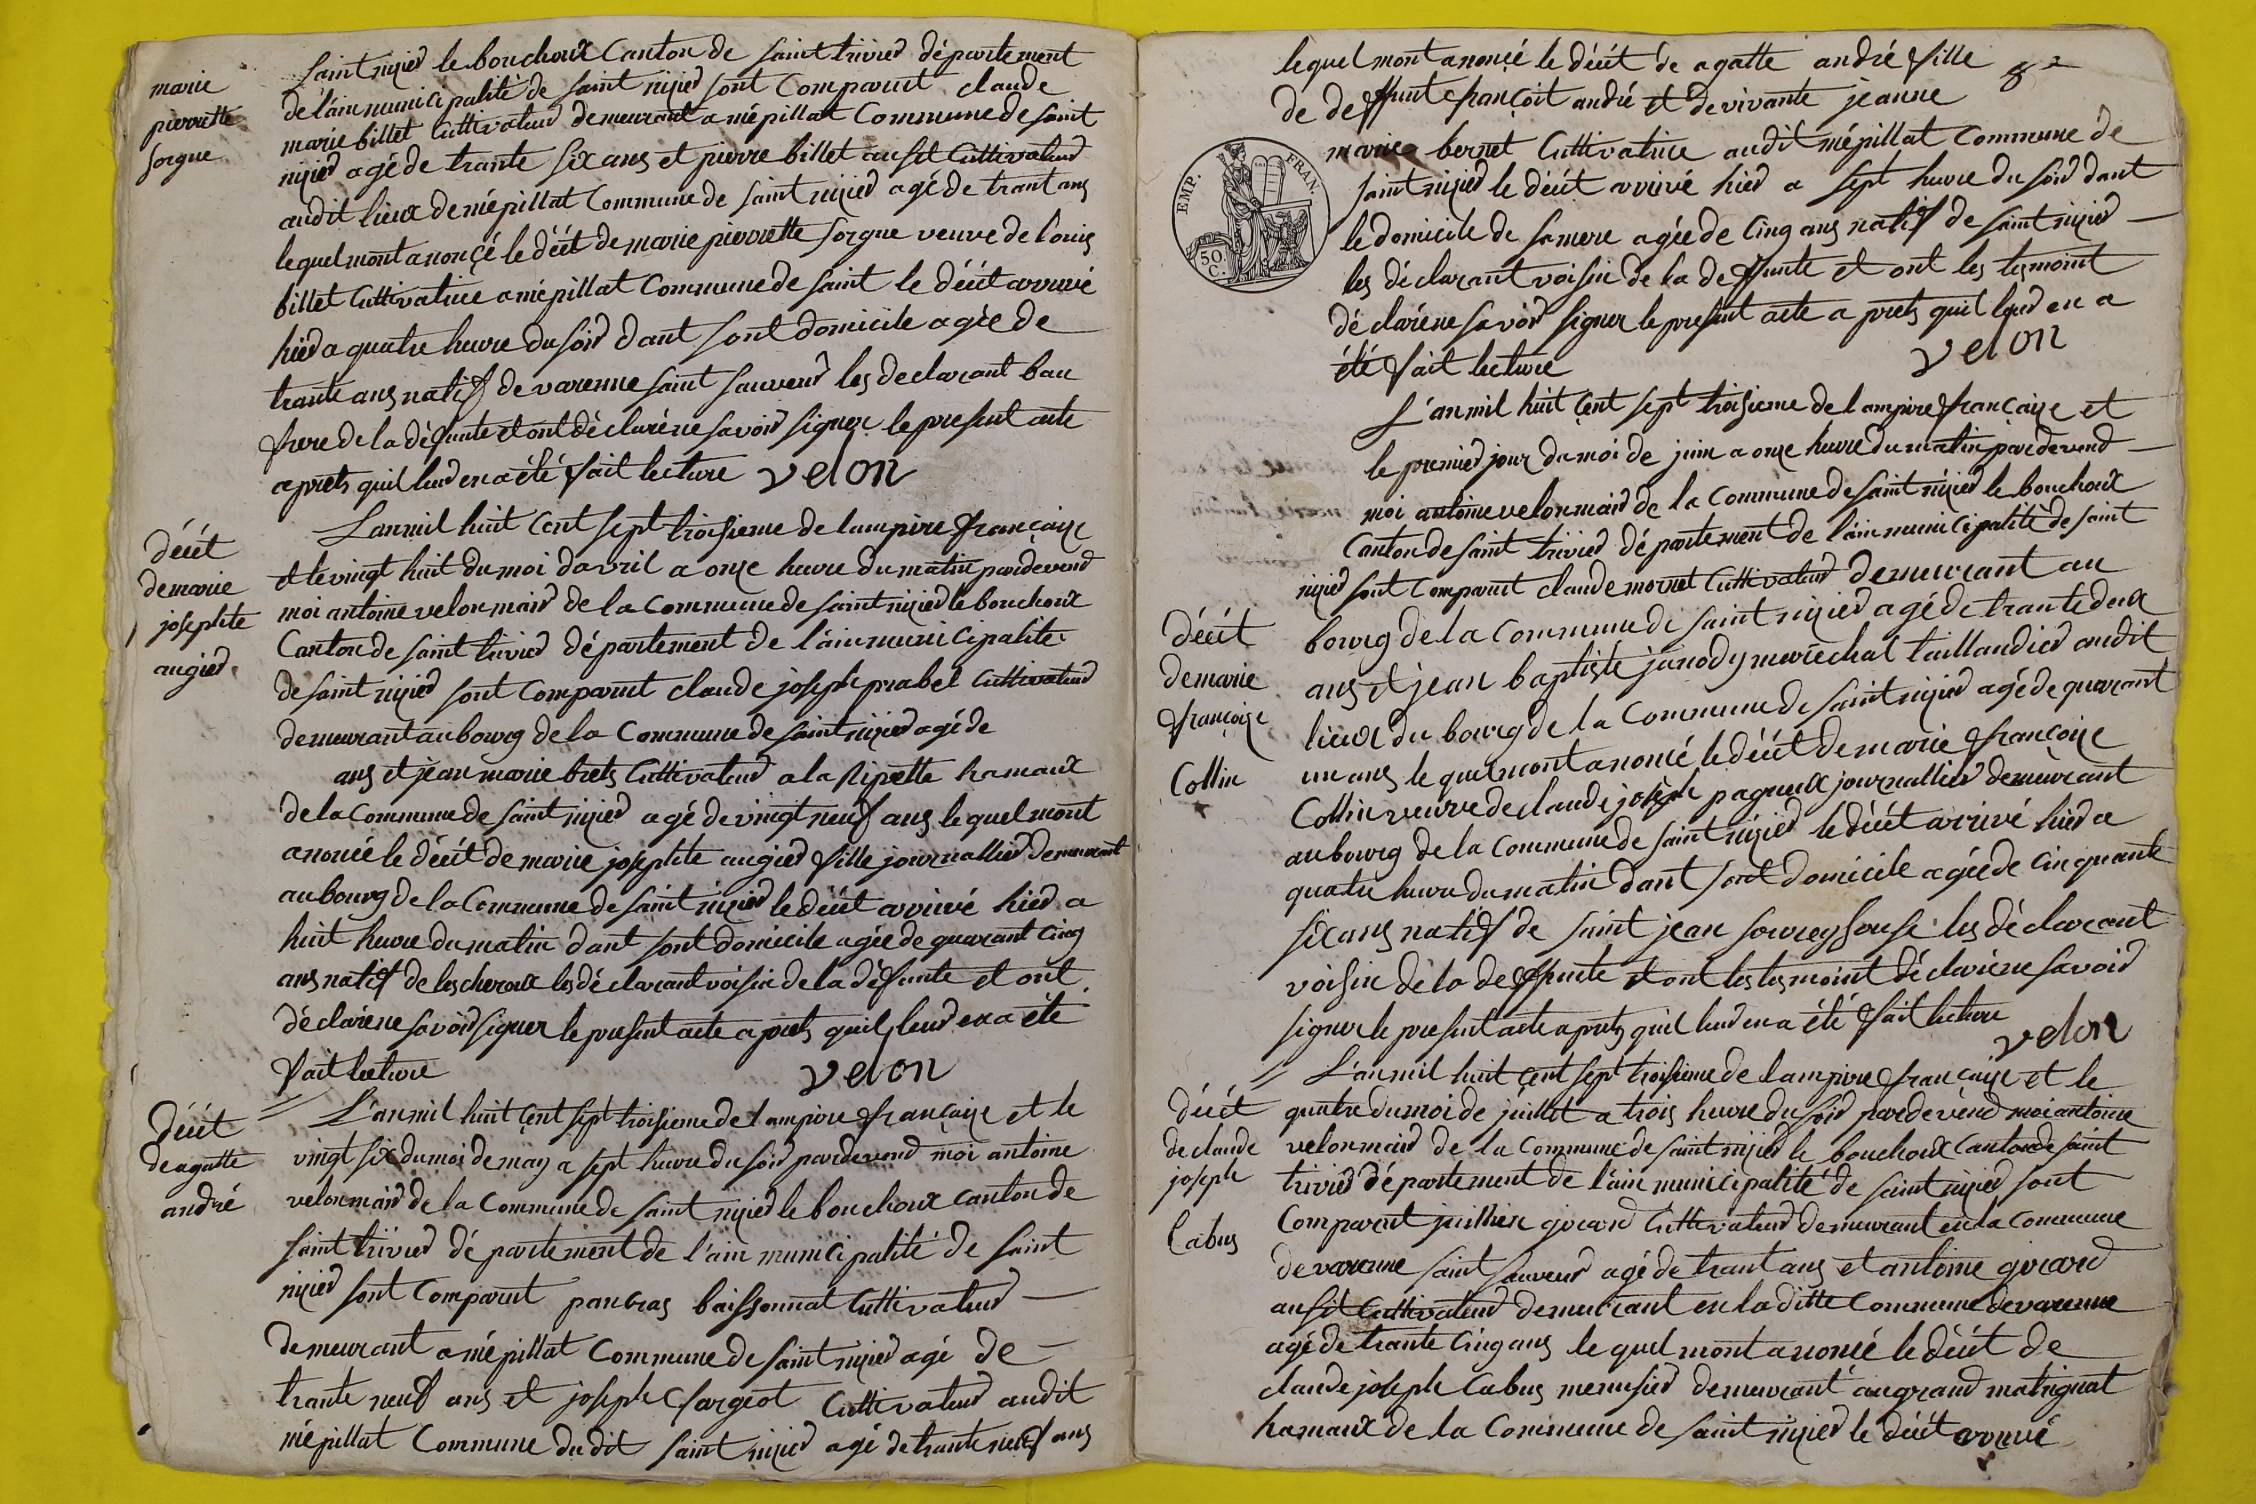 marie
pierrette
sorgue
saint nizier le bouchoux Canton de saint trivier département
de láin municipalité de saint nizier sont Comparut claude
marie billet Cuttivateur demeurant a mépillat Commune de saint
nizier agé de trante six ans et pierre billet ausit Cuttivateur
audit lieux de mépillat Commune de saint nizier agé de trant ans
lequel mont anonçé le déét de marie pierrette sorgue veuve de louis
billet Cuttivatrice a mépillat Commune de saint le déét arrivé
hier a quatre heure du soir dant sont domicile agée de
trante ans natif de varenne saint sauveur les declarant bau
frere de la défunte et ont déclaré ne savoir signer le present acte
a prets quil leur en a été fait lecture velon
déét
de marie
josephte
augier
Lan mil huit Cent sept troisieme de lampire françaize
et le vingt huit du moi davril a onze heure du matin pardevend
moi antoine velon mair de la Commune de saint nizier le bouchoux
Canton de saint trivier département de láin municipalité
de saint nizier sont Comparut claude joseph prabel Cuttivateur
demeurant au bourg de la Commune de saint nizier agé de
ans et jean marie brets Cuttivateur a la Ripette hamaux
de la Commune de saint nizier agé de vingt neuf ans lequel mont
anoncé le déét de marie josephte augier fille journallier demeurant
au bourg de la Commune de saint nizier le déét arrivé hier a
huit heure du matin dant sont domicile agée de quarant cinq
ans natif de lescheroux les déclarant voisin de la défunte et ont
déclaré ne savoir signer le present acte a prets quil leur en a été
fait lecture velon
déét
de agatte
andré
L'an mil huit çent sept troisieme de l ampire françaize et le
vingt six du moi de may a sept heure du soir pardevend moi antoine
velon mair de la Commune de saint nizier le bouchoux canton de
saint trivier département de l'ain municipalité de saint
nizier sont Comparut pancras baissonnat Cuttivateur
demeurant a mépillat Commune de saint nizier agé de
trante neuf ans et joseph fargeot Cuttivateur audit
mépillat Commune dudit saint nizier agé de trante neuf ans
8
lequel mont anonçé le déét de agatte andré fille
de deffunt françoit andré et de vivante jeanne
EMP. FRAN.
50 C.
marie bernet Cuttivatrice audit mépillat Commune de
saint nizier le déét arrivé hier a sept heure du soir dant
le domicile de sa mere agée de Cinq ans natif de saint nizier
les déclarant voisin de la deffunte et ont les tesmoint
déclaré ne savoir signer le present acte a prets quil leur en a
été fait lecture velon
déét
de marie
françoize
Collin
L'an mil huit çent sept troisieme de lampire françaize et
le premier jour du moi de juin a onze heure du matin pardevend
moi antoine velon mair de la Commune de saint nizier le bouchoux
Canton de saint trivier département de láin municipalité de saint
nizier sont Comparut claude mornet Cuttivateur demeurant au
bourg de la Commune de saint nizier agé de trante deux
ans et jean baptiste janody maréchal taillandier audit
lieux du bourg de la Commune de saint nizier agé de quarant
un ans lequel mont anoncé le déét de marie françoize
Collin veuve de claude joseph pagneux journallier demeurant
au bourg de la Commune de saint nizier le déét arrivé hier a
quatre heure du matin dant sont domicile agée de cinquante
six ans natif de saint jean sou reysouse les déclarant
voisin de la deffunte et ont les tesmoint déclaré ne savoir
signer le present acte a prets quil leur en a été fait lecture
velon
déét
de claude
joseph
Cabus
L'an mil huit çent sept troisieme de lampire françaize et le
quatre du moi de juillet a trois heure du soir pardevend moi antoine
velon mair de la Commune de saint nizier le bouchoux Canton de saint
trivier département de l'áin municipalité de saint nizier sont
Comparut juillien girard Cuttivateur demeurant en la Commune
de varenne saint sauveur agé de trant ans et antoine girard
ausit Cuttivateur demeurant en la ditte Commune de varenne
agé de trante Cinq ans lequel mont anoncé le déét de
claude joseph Cabus menusier demeurant au grand matignat
hamaux de la Commune de saint nizier le déét arrivé